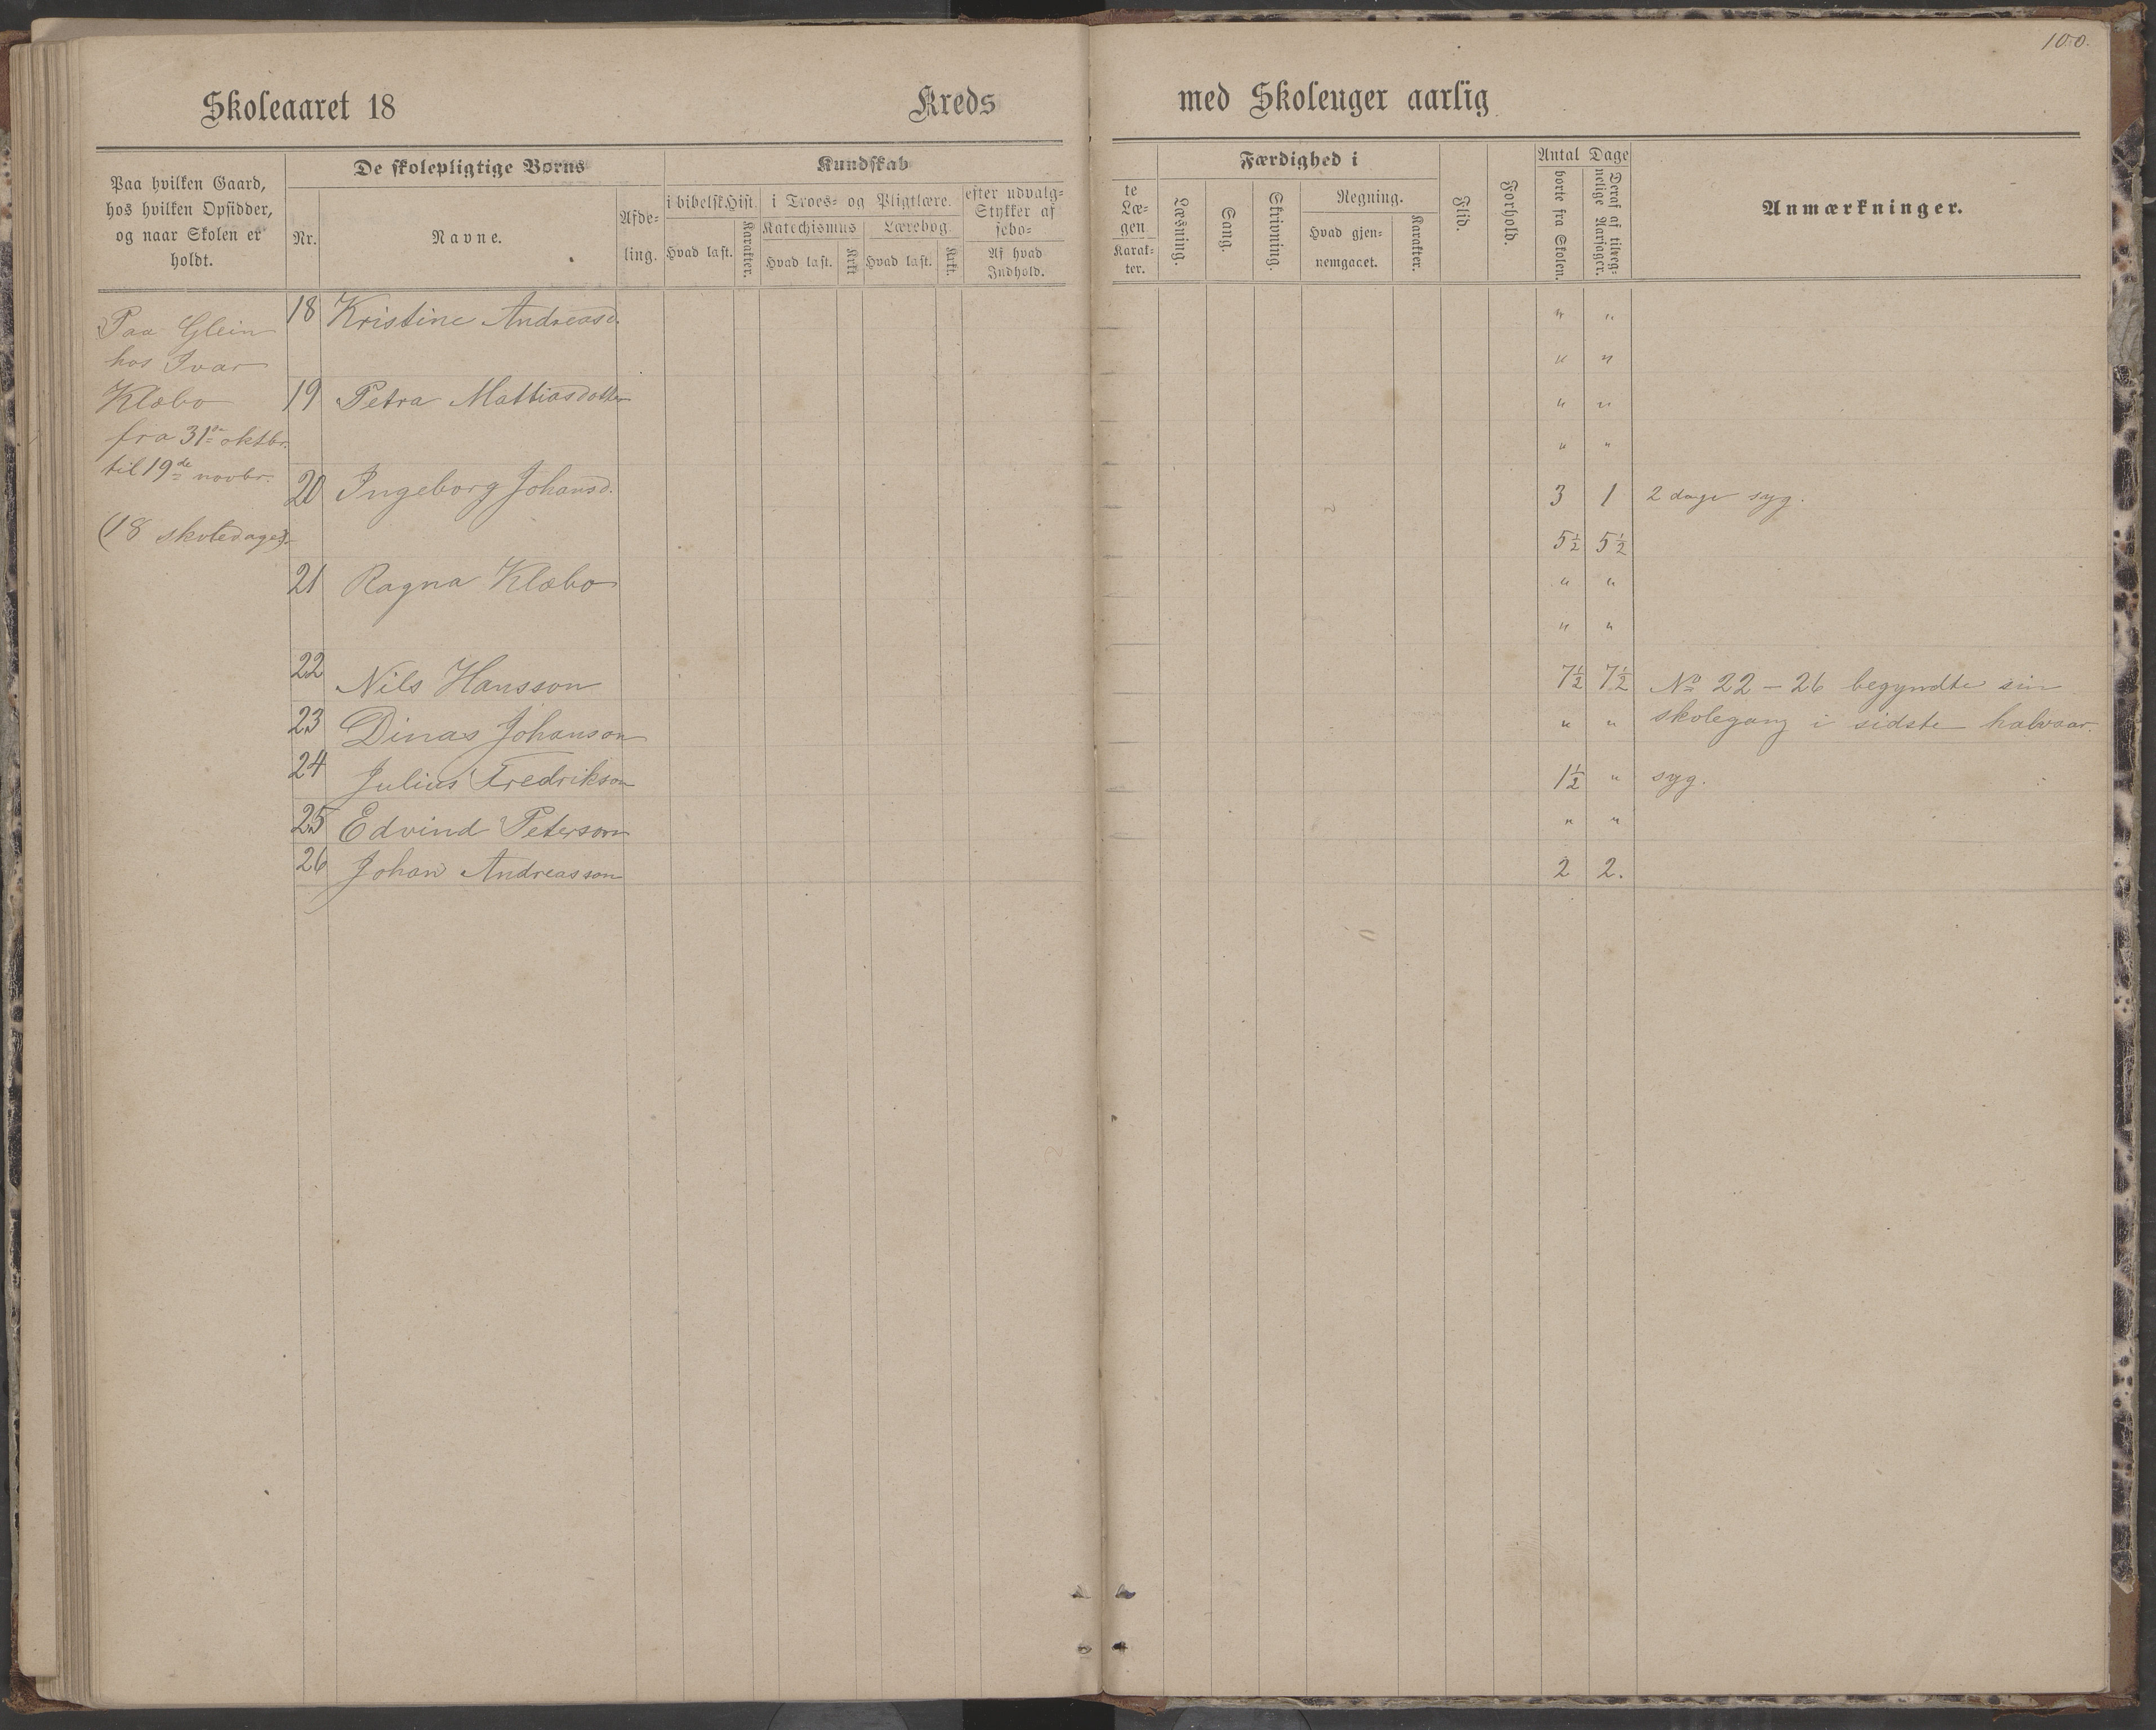 100.
Skoleaaret 18 Kreds med Skoleuger aarlig
Paa hvilken Gaard,
hos hvilken Opsidder,
og naar Skolen er
holdt.
De skolepligtige Børns
Nr. Navne. Afde-
ling.
Kundskab
i bibelsk Hist. i Troes- og Pligtlære. efter udvalg-
Stykker af
sebo-
Hvad læst. Karakter. Katechismus Lærebog.
Hvad læst. Krkt. Hvad læst. Krkt. Af hvad
Indhold.
te
Læ-
gen.
Karak-
ter.
Færdighed i
Læsning. Sang. Skrivning. Regning.
Hvad gjen-
nemgaaet. Karakter.
Flid. Forhold.
Antal Dage
borte fra Skolen. Deraf af tilreg-
nelige Aarsager.
Anmærkninger.
Paa Glein
hos Ivar
Klæbo
fra 31te oktbr.
til 19de novbr.
(18 skoledage).
18 Kristine Andreasd. " "
" "
19 Petra Mattiasdotter " "
" "
20 Ingeborg Johansd. 3 1 2 dage syg.
5½ 5½
21 Ragna Klæbo " "
" "
22 Nils Hansson 7½ 7½ No 22 - 26 begyndte sin
23 Dinas Johanson " " skolegang i sidste halvaar.
24 Julius Fredrikson 1½ " syg.
25 Edvind Peterson " "
26 Johan Andreasson 2 2.